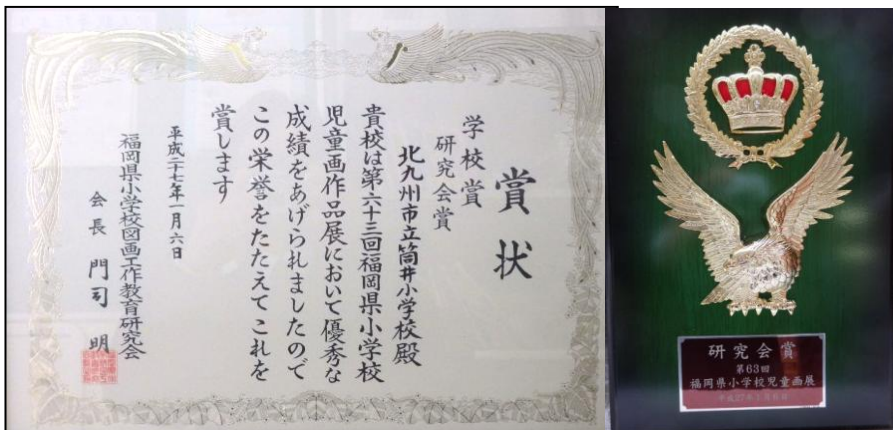 賞状
学校賞
研究会賞
北九州市立筒井小学校殿
貴校は第六十三回福岡県小学校
児童画作品展において優秀な
成績をあげられましたので
この栄誉をたたえてこれを
賞します
平成二十七年一月六日
福岡県小学校図画工作教育研究会
会長 門司 明
研究会賞
第63回
福岡県小学校児童画展
平成27年1月6日